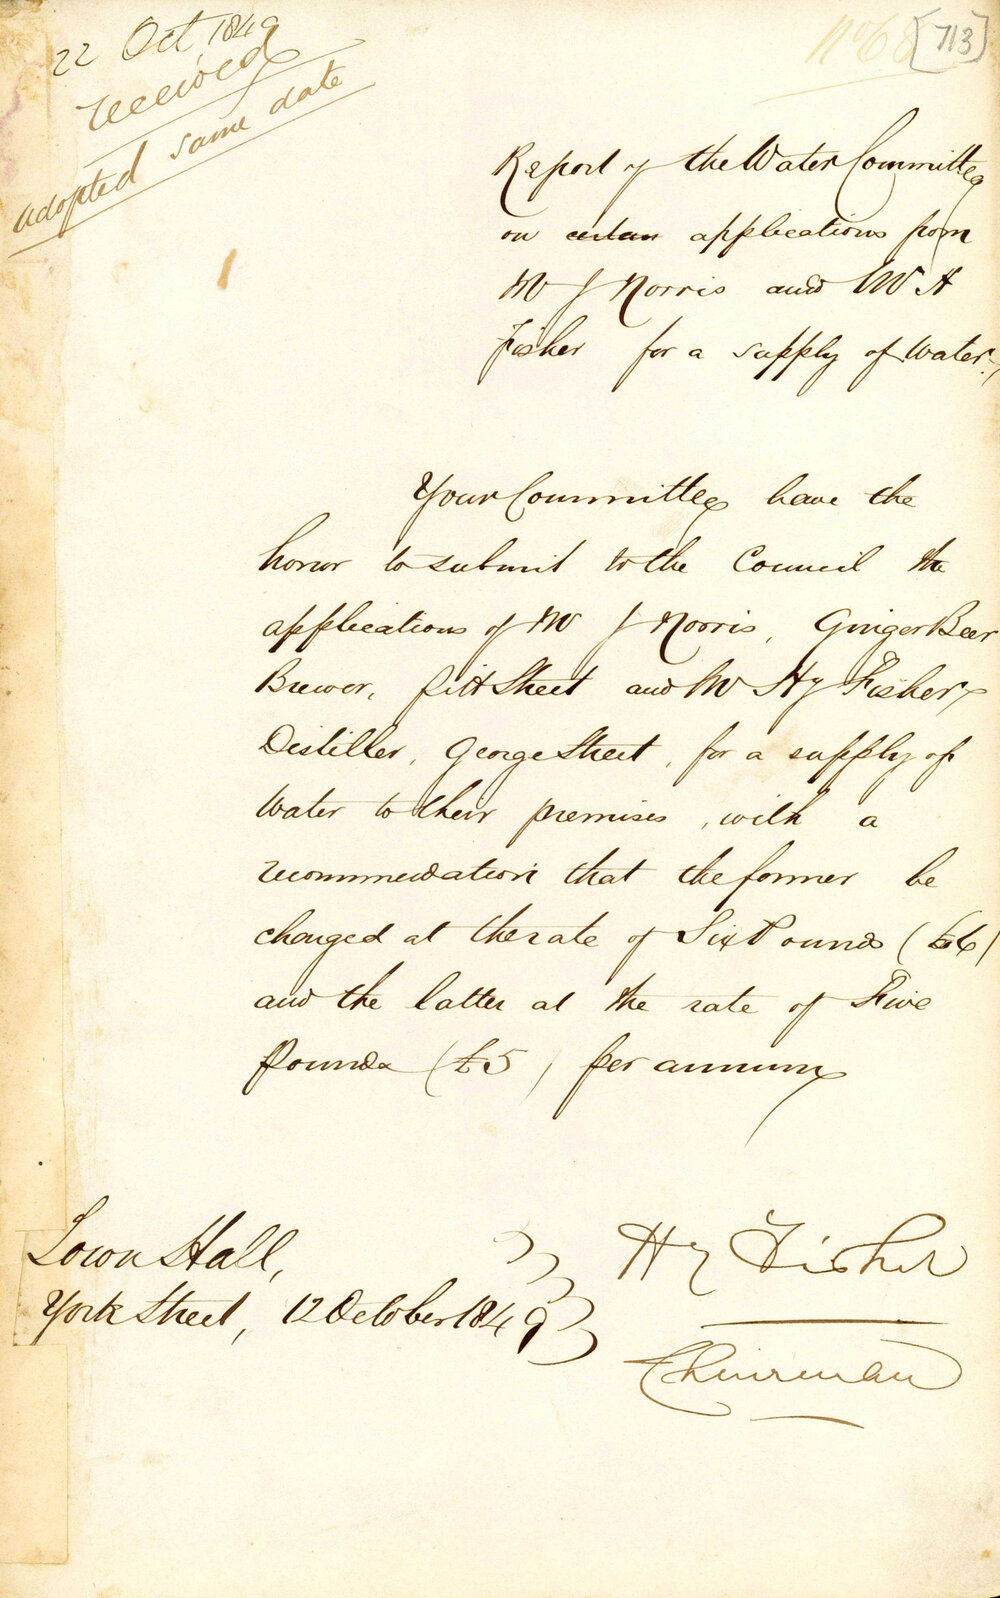 22 Oct. 1849
received
adopted same date
No 68 [713]
Report of the Water Committee
on certain applications from
Mr J Norris and Mr H
Fisher for a supply of Water.
Your Committee have the
honor to submit to the Council the
applications of Mr J Norris, Ginger Beer
Brewer, Pitt Street and Mr Hy Fisher,
Distiller, George Street, for a supply of
Water to their premises, with a
recommendation that the former be
charged at the rate of Six Pounds (£6)
and the latter at the rate of Five
Pounds (£5) per annum
Town Hall,
York Street, 12 October 1849
Hy Fisher
Chairman